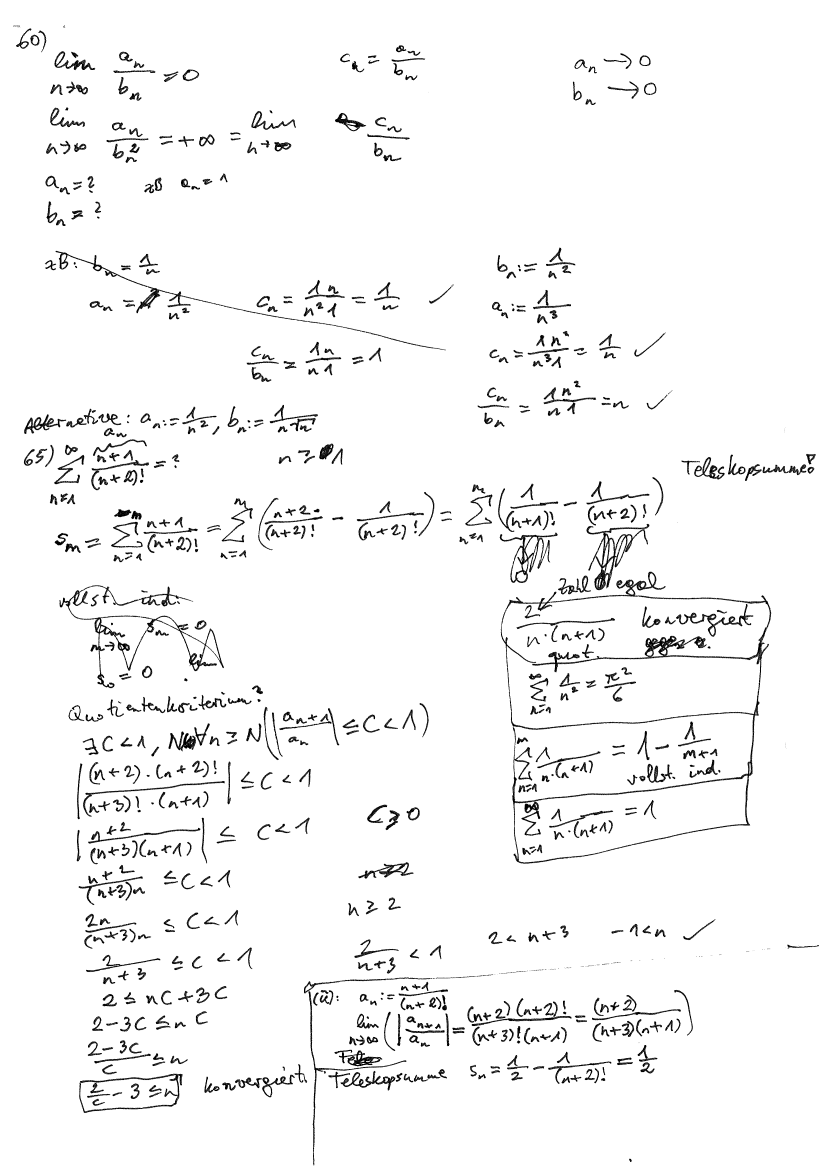 60)
lim n→∞ a_n/b_n = 0    c_n = a_n/b_n    a_n → 0
b_n → 0
lim n→∞ a_n/b_n² = +∞ = lim n→∞ c_n/b_n
a_n = ?    zB a_n = 1
b_n = ?
zB: b_n = 1/n
a_n = 1/n²    c_n = 1n/n²1 = 1/n ✓
c_n/b_n = 1n/n1 = 1
b_n := 1/n²
a_n := 1/n³
c_n = 1n²/n³1 = 1/n ✓
c_n/b_n = 1n²/n1 = n ✓
Alternative: a_n := 1/n², b_n := 1/n√n
65) ∑_{n=1}^∞ (n+1)/(n+2)! = ?    n ≥ 1
a_n
Teleskopsumme!
s_m = ∑_{n=1}^m (n+1)/(n+2)! = ∑_{n=1}^m ((n+2)/(n+2)! − 1/(n+2)!) = ∑_{n=1}^m (1/(n+1)! − 1/(n+2)!)
vollst. ind.
lim m→∞ s_m = 0
s_0 = 0    lim
Zahl egal
2/n·(n+1) konvergiert
quot.
∑_{n=1}^∞ 1/n² = π²/6
∑_{n=1}^m 1/n·(n+1) = 1 − 1/m+1
vollst. ind.
∑_{n=1}^∞ 1/n·(n+1) = 1
Quotientenkriterium?
∃C<1, N ∀n ≥ N (|a_{n+1}/a_n| ≤ C < 1)
|(n+2)·(n+2)!/(n+3)!·(n+1)| ≤ C < 1
|n+2/(n+3)(n+1)| ≤ C < 1    C ≥ 0
n+2/(n+3)n ≤ C < 1    n ≥ 2
n ≥ 2
2n/(n+3)n ≤ C < 1
2/n+3 ≤ C < 1    2/n+3 < 1    2 < n+3    −1 < n ✓
2 ≤ nC + 3C
2 − 3C ≤ nC
2−3C/C ≤ n
2/C − 3 ≤ n    konvergiert.
(ü): a_n := n+1/(n+2)!
lim n→∞ (|a_{n+1}/a_n| = (n+2)(n+2)!/(n+3)!(n+1) = (n+2)/(n+3)(n+1))
Teleskopsumme    s_n = 1/2 − 1/(n+2)! = 1/2